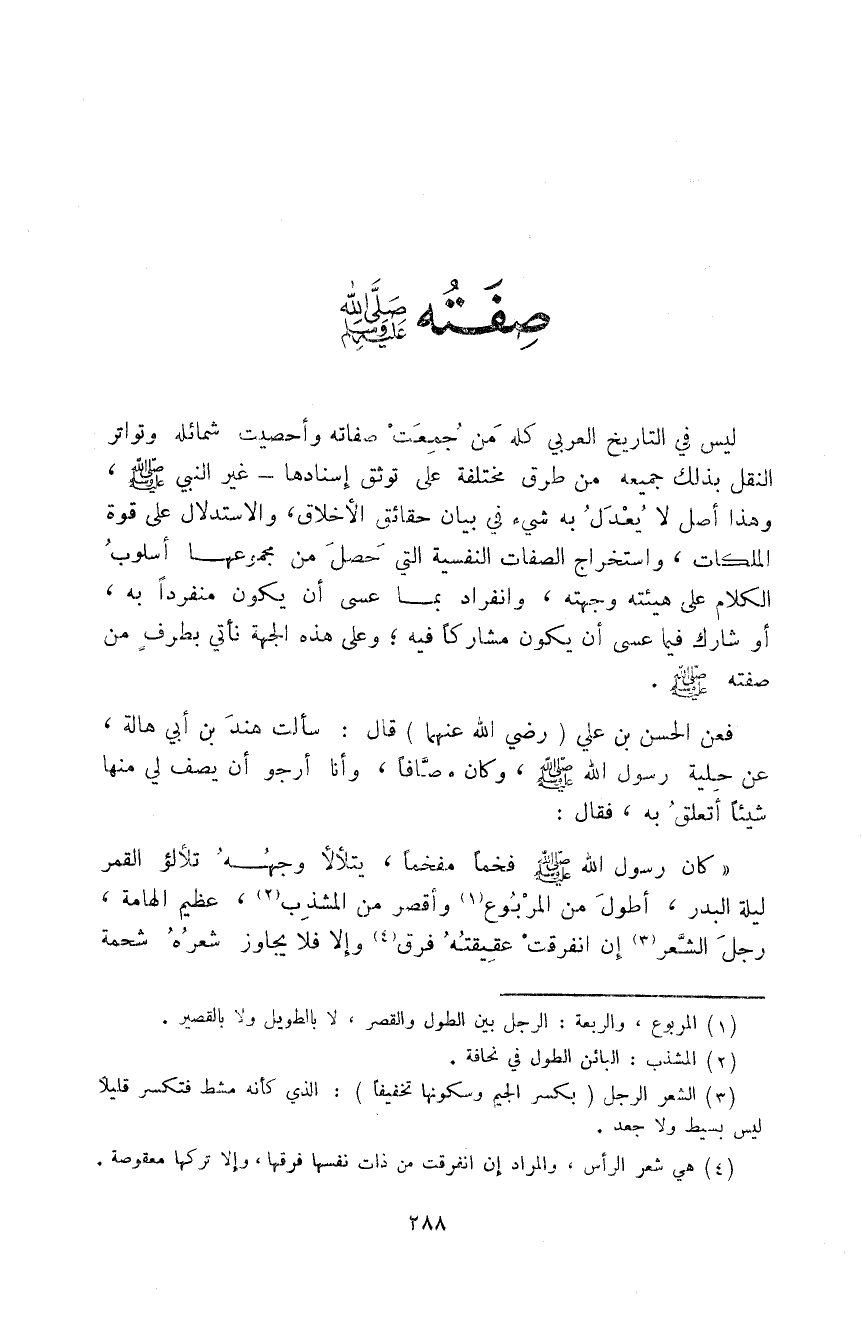 صِفَـتُه ﷺ
ليس في التاريخ العربي كله مَن جُمِعَتْ صفاته وأحصيت شمائله وتواتر
النقل بذلك جميعه من طرق مختلفة على توثق إسنادها – غير النبي ﷺ ،
وهذا أصل لا يُعْدَلُ به شيء في بيان حقائق الأخلاق، والاستدلال على قوة
الملكات ، واستخراج الصفات النفسية التي حَصلَ من مجموعهـا أسلوبُ
الكلام على هيئته وجهته ، وانفراد بمـا عسى أن يكون منفرداً به ،
أو شارك فيما عسى أن يكون مشاركاً فيه ؛ وعلى هذه الجهة نأتي بطرفٍ من
صفته ﷺ .
فعن الحسن بن علي ( رضي الله عنهما ) قال : سألت هندَ بن أبي هالة ،
عن حِلية رسول الله ﷺ ، وكان وصَّافاً ، وأنا أرجو أن يصف لي منها
شيئاً أتعلقُ به ، فقال :
« كان رسول الله ﷺ فخماً مفخماً ، يتلألأ وجهُـهُ تلألؤ القمر
ليلة البدر ، أطولَ من المرْبُوع(١) وأقصر من المشذب(٢) ، عظيم الهامة ،
رجلَ الشَّعر(٣) إن انفرقتْ عقيقتُهُ فرق(٤) وإلا فلا يجاوز شعرُهُ شحمة
(١) المربوع ، والربعة : الرجل بين الطول والقصر ، لا بالطويل ولا بالقصير .
(٢) المشذب : البائن الطول في نحافة .
(٣) الشعر الرجل ( بكسر الجيم وسكونها تخفيفاً ) : الذي كأنه مشط فتكسر قليلاً
ليس بسيط ولا جعد .
(٤) هي شعر الرأس ، والمراد إن انفرقت من ذات نفسها فرقها ، وإلا تركها معقوصة .
٢٨٨